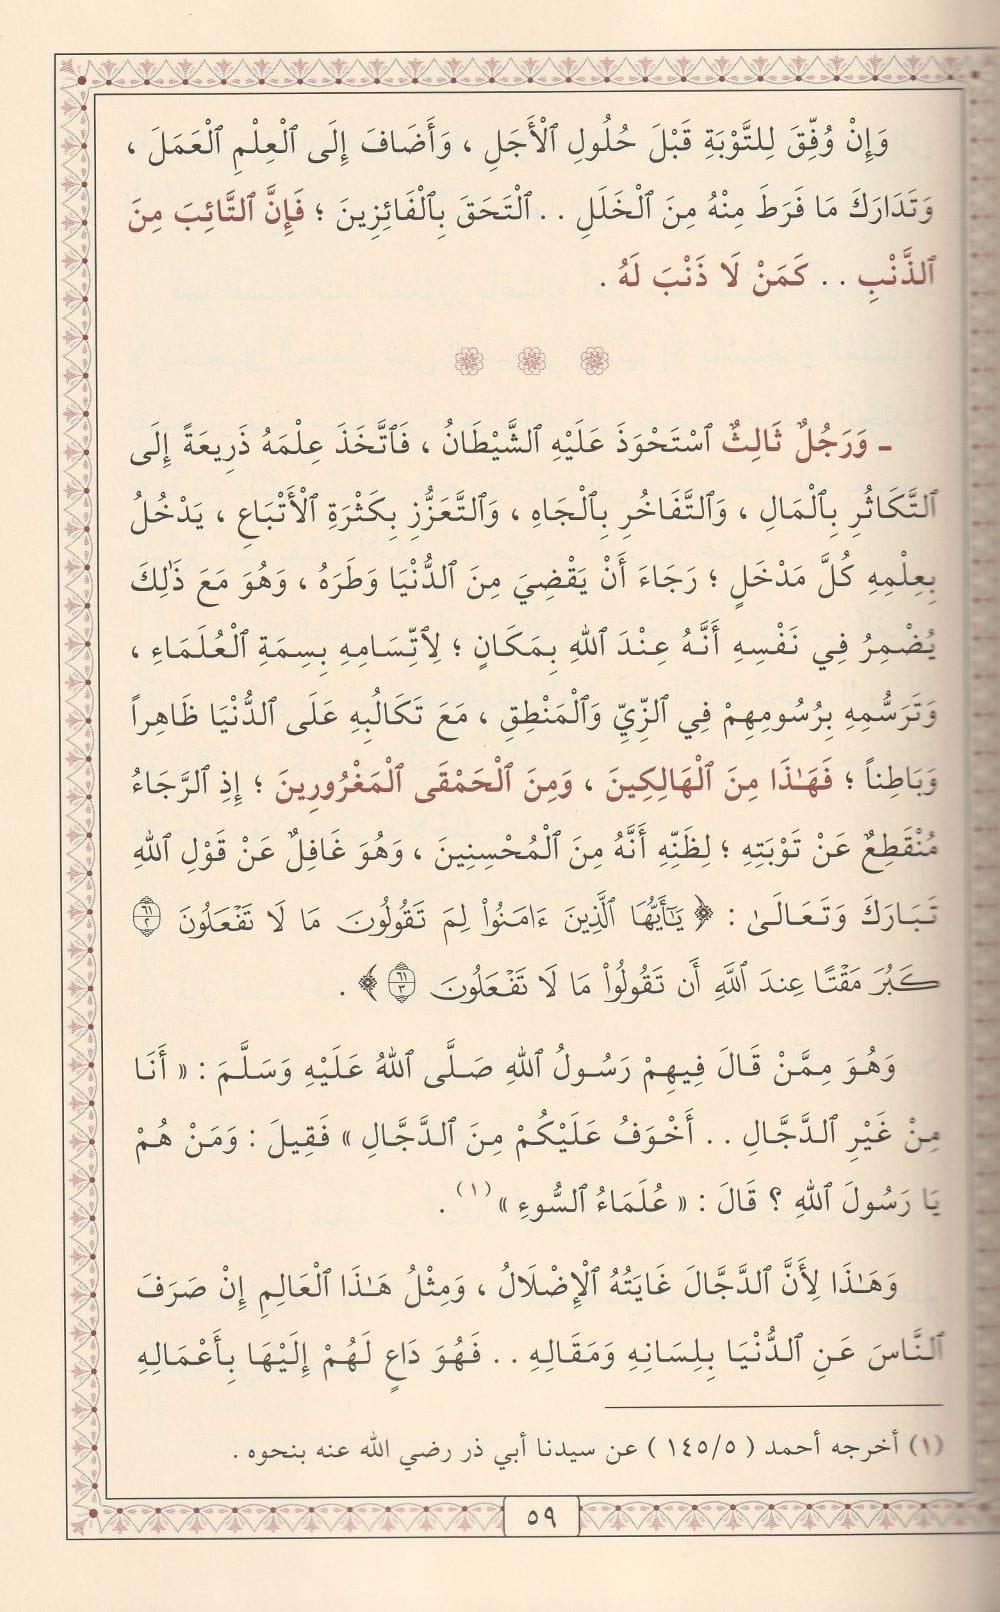 وَإِنْ وُفِّقَ لِلتَّوْبَةِ قَبْلَ حُلُولِ ٱلْأَجَلِ ، وَأَضَافَ إِلَى ٱلْعِلْمِ ٱلْعَمَلَ ،
وَتَدَارَكَ مَا فَرَطَ مِنْهُ مِنَ ٱلْخَلَلِ . . ٱلْتَحَقَ بِٱلْفَائِزِينَ ؛ فَإِنَّ ٱلتَّائِبَ مِنَ
ٱلذَّنْبِ . . كَمَنْ لَا ذَنْبَ لَهُ .
ـ وَرَجُلٌ ثَالِثٌ ٱسْتَحْوَذَ عَلَيْهِ ٱلشَّيْطَانُ ، فَٱتَّخَذَ عِلْمَهُ ذَرِيعَةً إِلَى
ٱلتَّكَاثُرِ بِٱلْمَالِ ، وَٱلتَّفَاخُرِ بِٱلْجَاهِ ، وَٱلتَّعَزُّزِ بِكَثْرَةِ ٱلْأَتْبَاعِ ، يَدْخُلُ
بِعِلْمِهِ كُلَّ مَدْخَلٍ ؛ رَجَاءَ أَنْ يَقْضِيَ مِنَ ٱلدُّنْيَا وَطَرَهُ ، وَهُوَ مَعَ ذَٰلِكَ
يُضْمِرُ فِي نَفْسِهِ أَنَّهُ عِنْدَ ٱللهِ بِمَكَانٍ ؛ لِٱتِّسَامِهِ بِسِمَةِ ٱلْعُلَمَاءِ ،
وَتَرَسُّمِهِ بِرُسُومِهِمْ فِي ٱلزِّيِّ وَٱلْمَنْطِقِ ، مَعَ تَكَالُبِهِ عَلَى ٱلدُّنْيَا ظَاهِراً
وَبَاطِناً ؛ فَهَـٰذَا مِنَ ٱلْهَالِكِينَ ، وَمِنَ ٱلْحَمْقَى ٱلْمَغْرُورِينَ ؛ إِذِ ٱلرَّجَاءُ
مُنْقَطِعٌ عَنْ تَوْبَتِهِ ؛ لِظَنِّهِ أَنَّهُ مِنَ ٱلْمُحْسِنِينَ ، وَهُوَ غَافِلٌ عَنْ قَوْلِ ٱللهِ
تَبَارَكَ وَتَعَالَىٰ : ﴿ يَـٰٓأَيُّهَا ٱلَّذِينَ ءَامَنُوا۟ لِمَ تَقُولُونَ مَا لَا تَفْعَلُونَ ٦١ ٢
كَبُرَ مَقْتًا عِندَ ٱللَّهِ أَن تَقُولُوا۟ مَا لَا تَفْعَلُونَ ٦١ ٣ ﴾ .
وَهُوَ مِمَّنْ قَالَ فِيهِمْ رَسُولُ ٱللهِ صَلَّى ٱللهُ عَلَيْهِ وَسَلَّمَ : « أَنَا
مِنْ غَيْرِ ٱلدَّجَّالِ . . أَخْوَفُ عَلَيْكُمْ مِنَ ٱلدَّجَّالِ » فَقِيلَ : وَمَنْ هُمْ
يَا رَسُولَ ٱللهِ ؟ قَالَ : « عُلَمَاءُ ٱلسُّوءِ » (١) .
وَهَـٰذَا لِأَنَّ ٱلدَّجَّالَ غَايَتُهُ ٱلْإِضْلَالُ ، وَمِثْلُ هَـٰذَا ٱلْعَالِمِ إِنْ صَرَفَ
ٱلنَّاسَ عَنِ ٱلدُّنْيَا بِلِسَانِهِ وَمَقَالِهِ . . فَهُوَ دَاعٍ لَهُمْ إِلَيْهَا بِأَعْمَالِهِ
(١) أخرجه أحمد ( ١٤٥/٥ ) عن سيدنا أبي ذر رضي الله عنه بنحوه .
٥٩